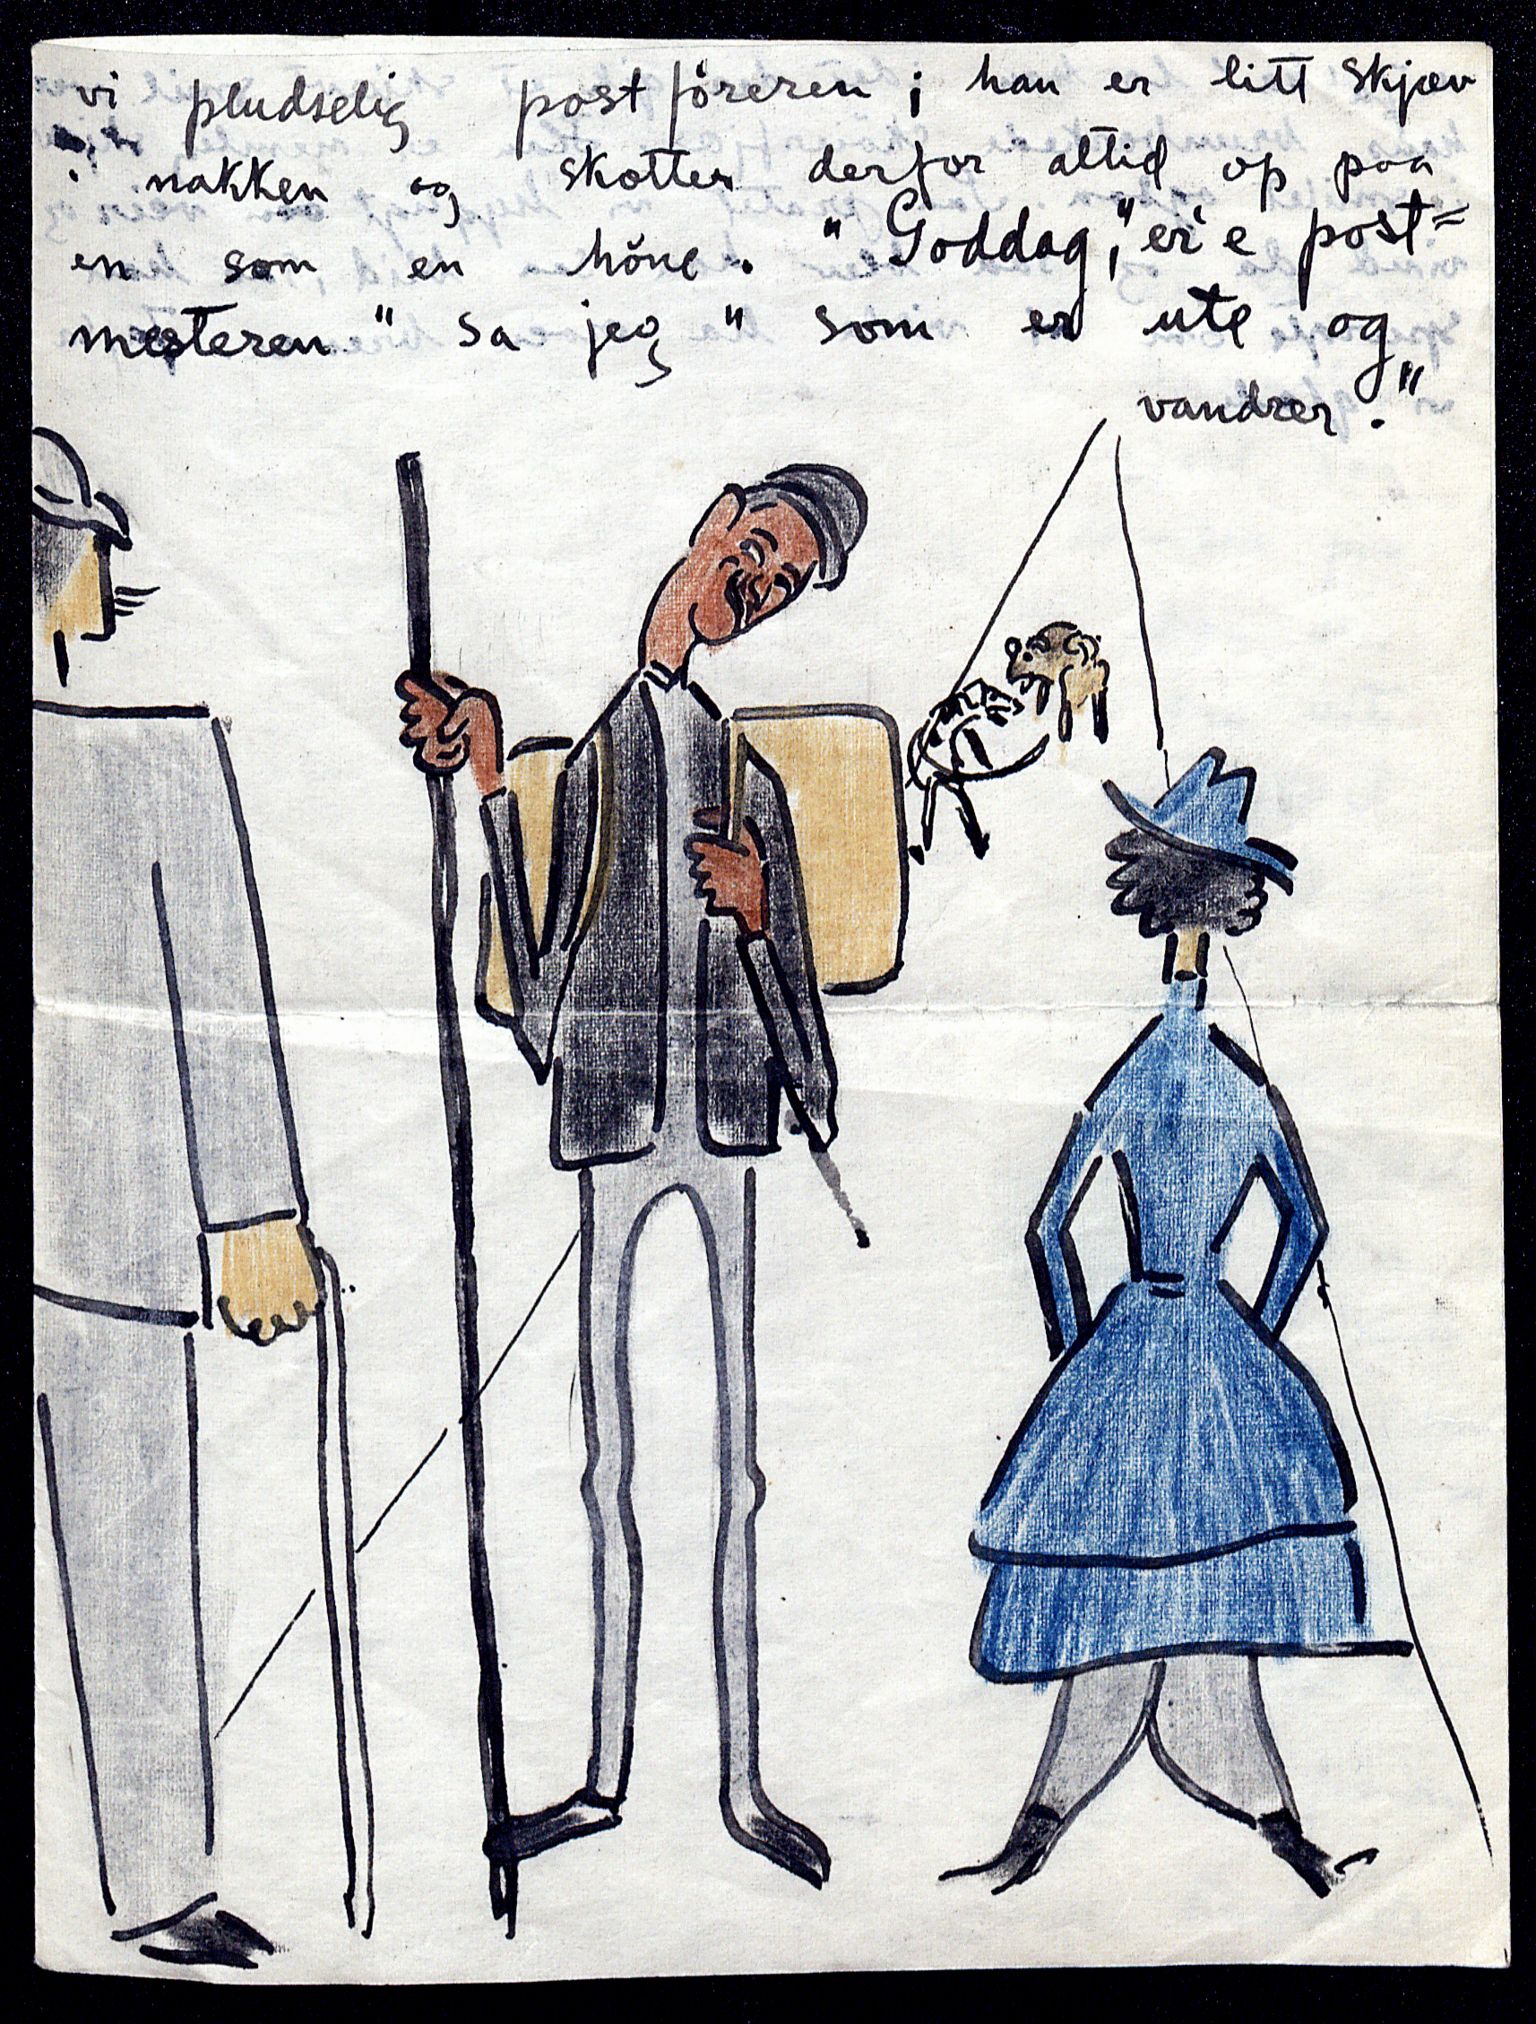 vi pludselig postföreren; han er litt skjæv
i nakken og skotter derfor altid op paa
en som en höne. "Goddag," er'e post=
mesteren" sa jeg "som er ute og
vandrer."